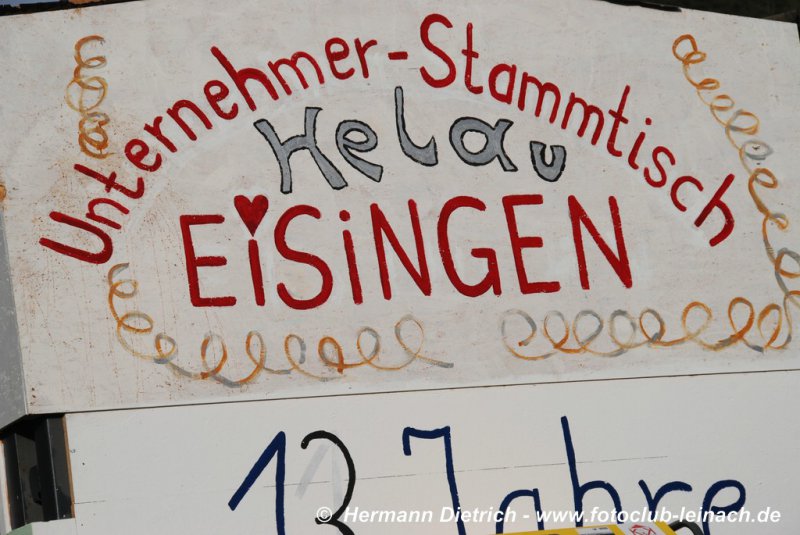 Unternehmer-Stammtisch
Helau
EiSiNGEN
13 Jahre
© Hermann Dietrich - www.fotoclub-leinach.de